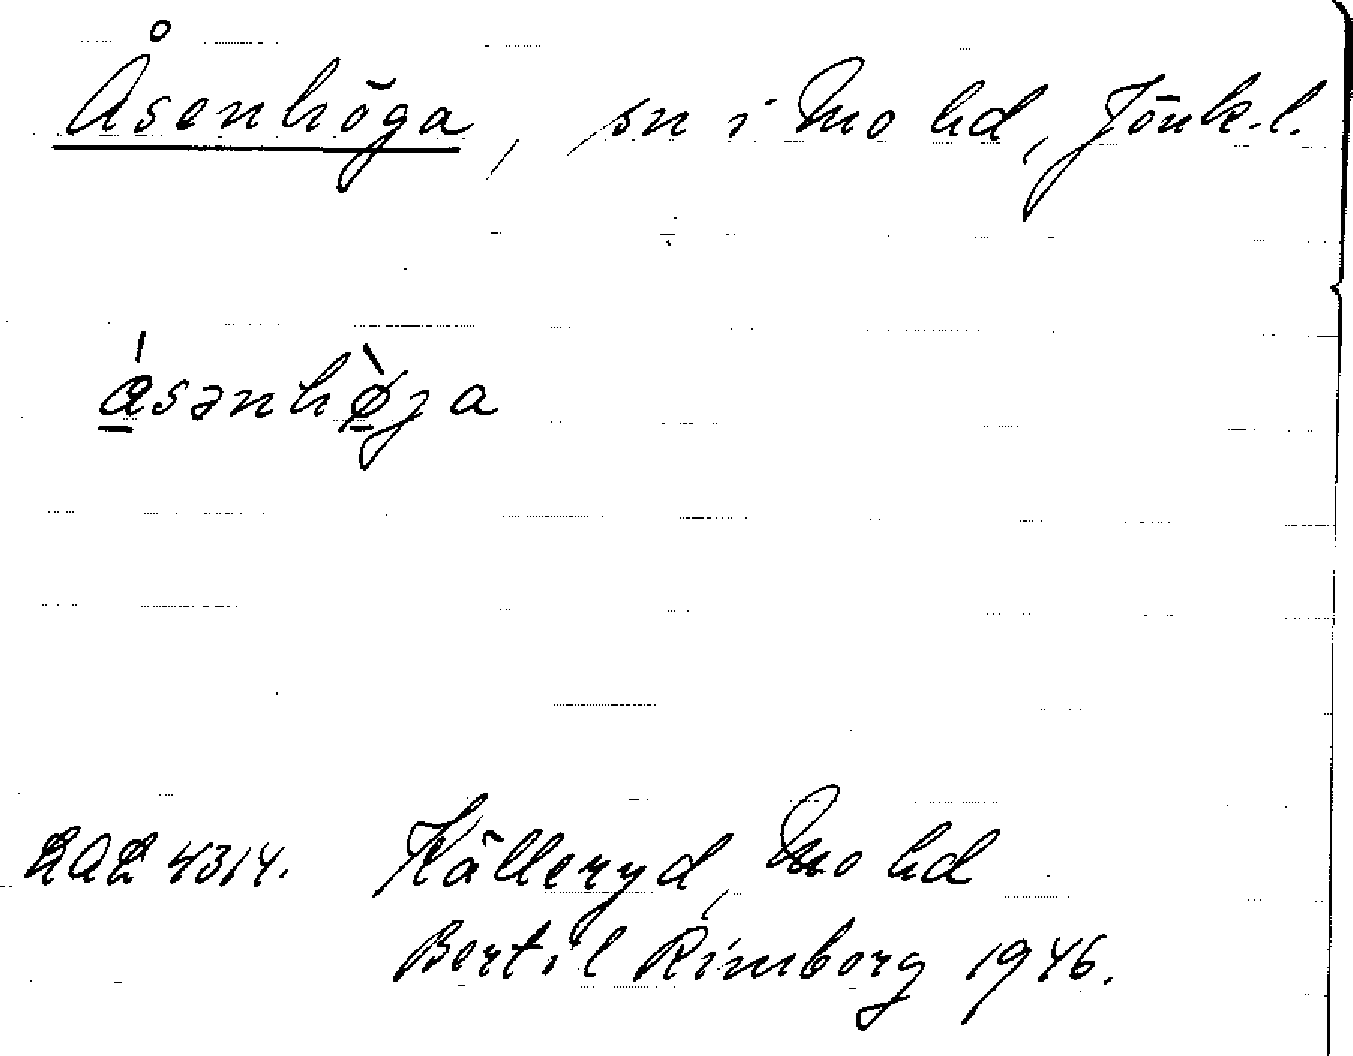 Åsenhöga, sn i Mo hd, Jönk.l.
ǻsənhø̀ja
LAL 4314. Källeryd, Mo hd
Bertil Rimborg 1946.